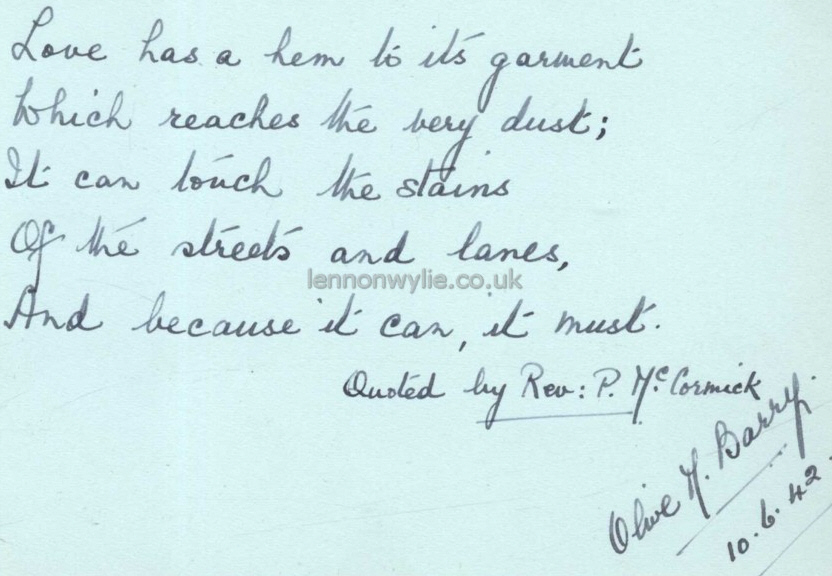 Love has a hem to its garment
Which reaches the very dust;
It can touch the stains
Of the streets and lanes,
lennonwylie.co.uk
And because it can, it must.
Quoted by Rev: P. McCormick
Olive M. Barry.
10.6.42.